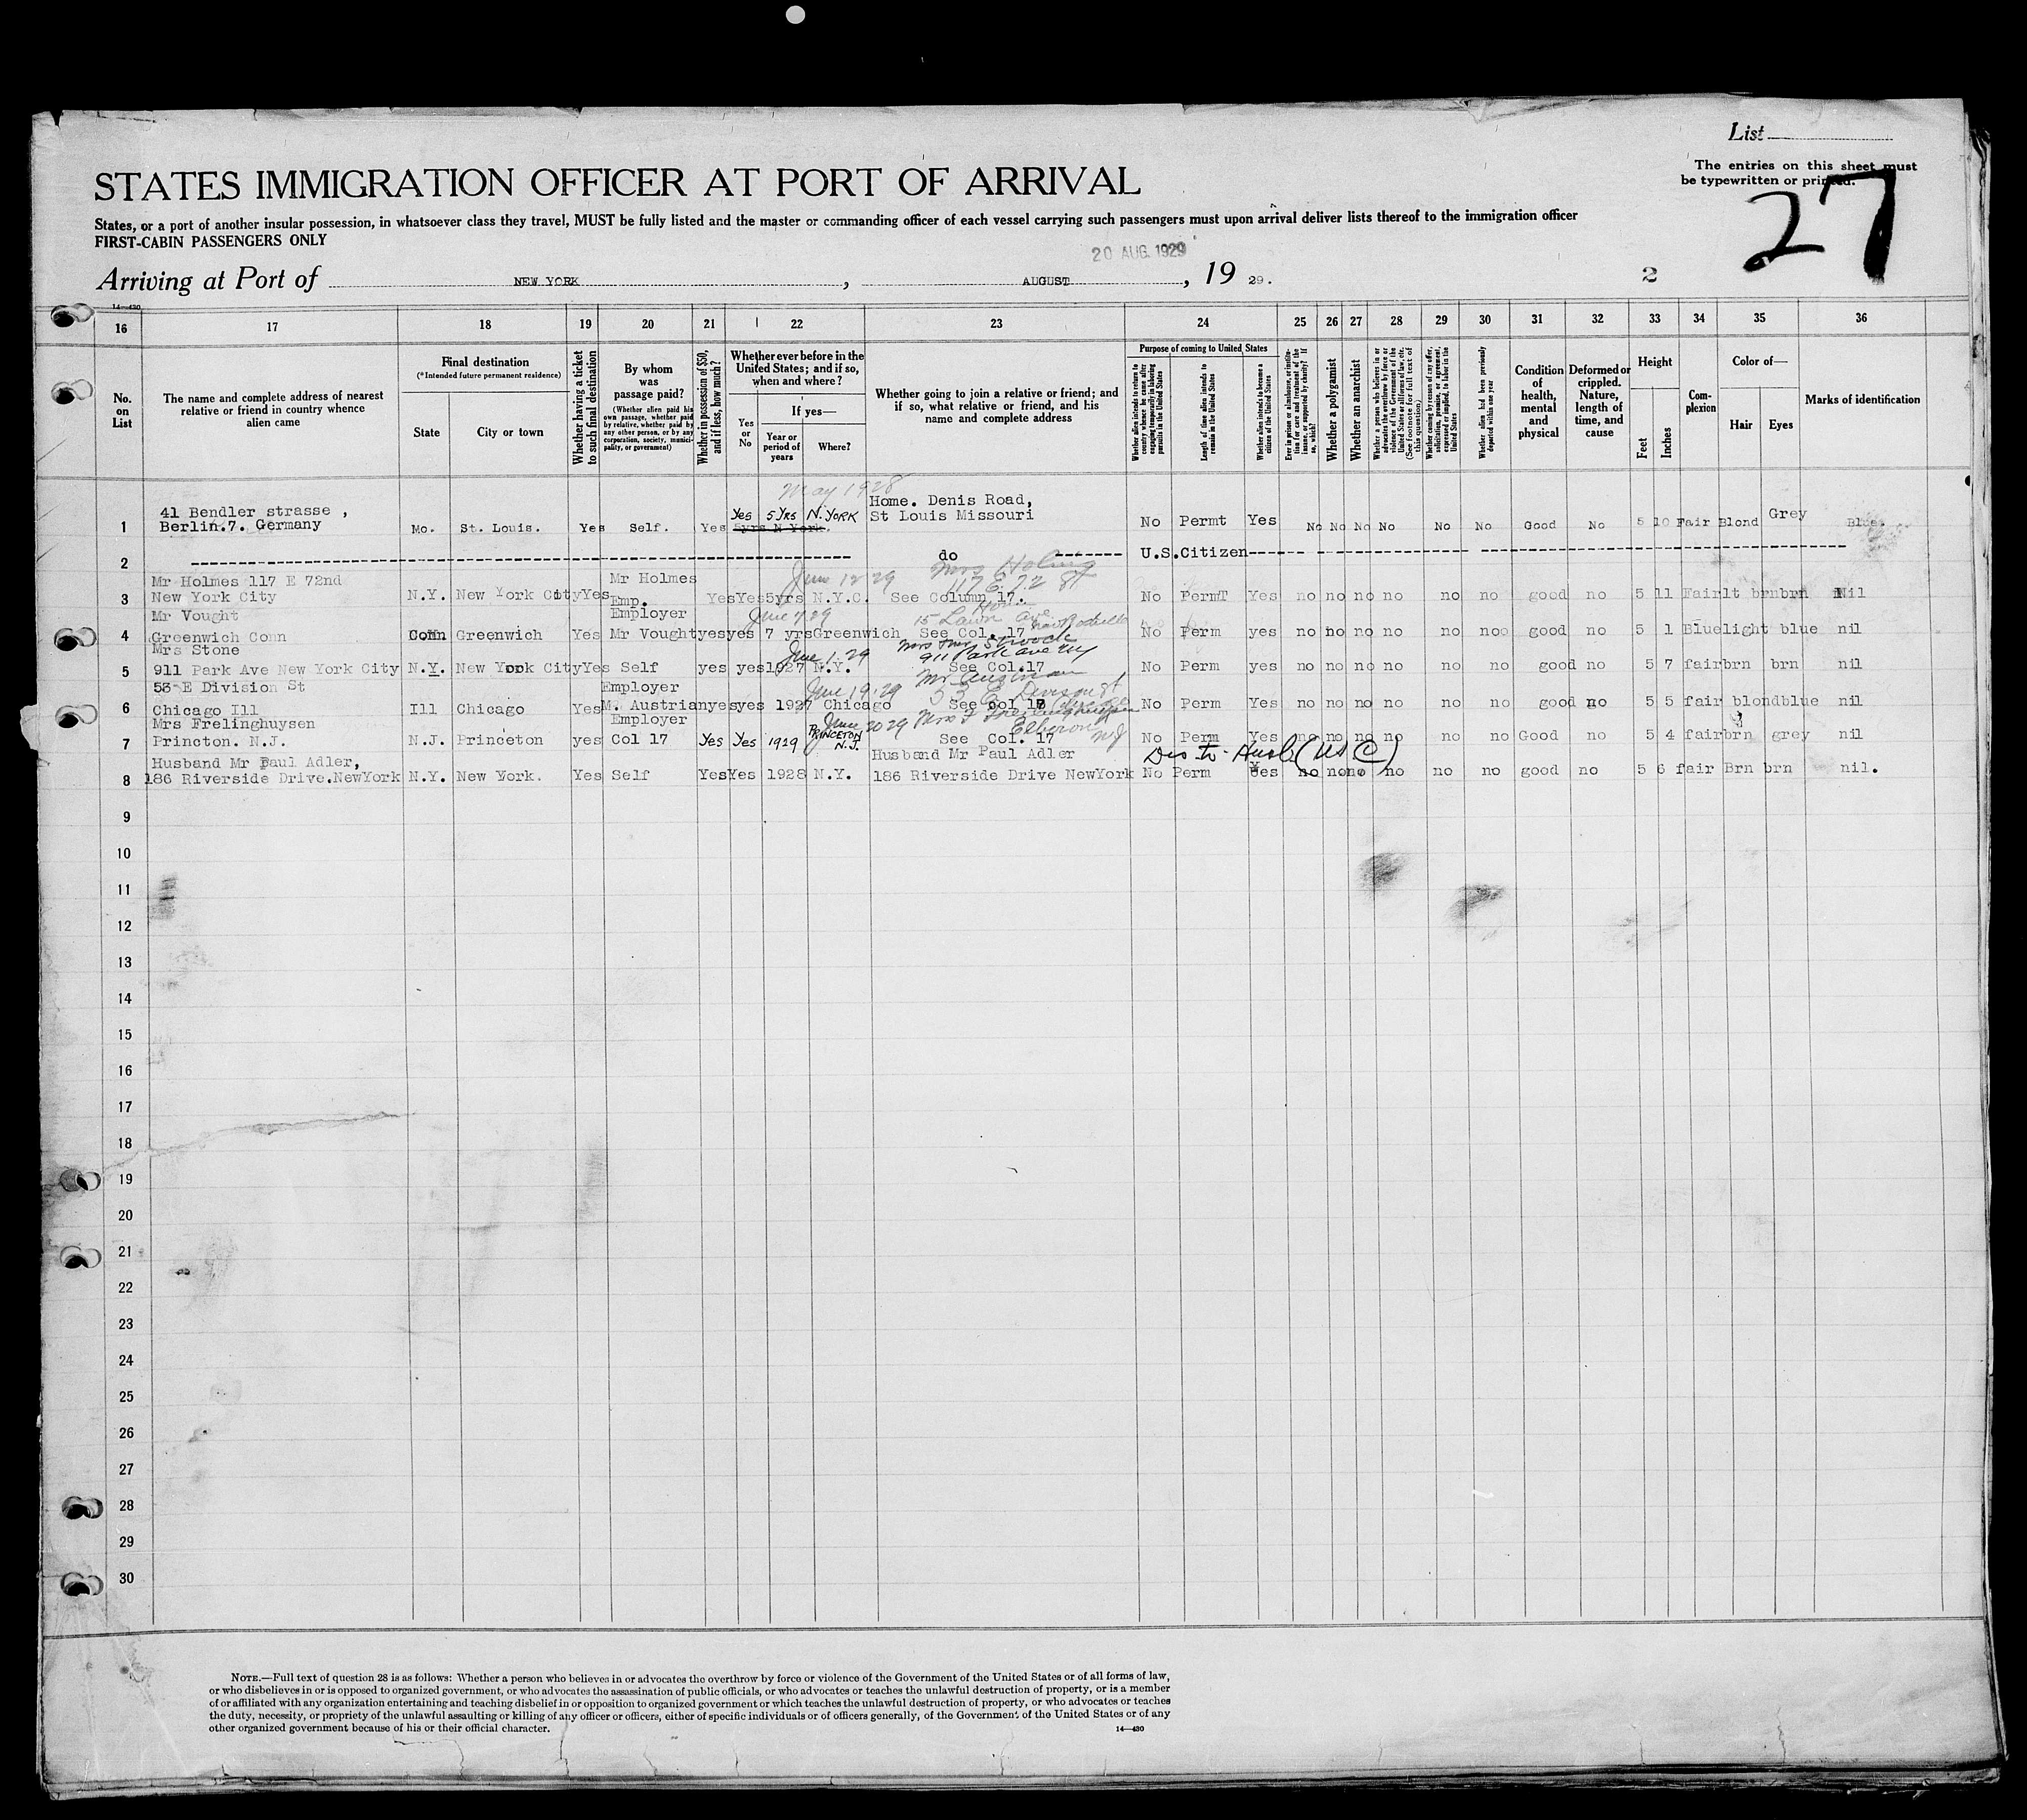 List
The entries on this sheet must
be typewritten or printed.
27
STATES IMMIGRATION OFFICER AT PORT OF ARRIVAL
States, or a port of another insular possession, in whatsoever class they travel, MUST be fully listed and the master or commanding officer of each vessel carrying such passengers must upon arrival deliver lists thereof to the immigration officer
FIRST-CABIN PASSENGERS ONLY
20 AUG. 1929
Arriving at Port of NEW YORK, AUGUST, 19 29.
2
14—430
16 17 18 19 20 21 22 23 24 25 26 27 28 29 30 31 32 33 34 35 36
No. on List
The name and complete address of nearest relative or friend in country whence alien came
Final destination
(*Intended future permanent residence)
State
City or town
Whether having a ticket to such final destination
By whom was passage paid?
(Whether alien paid his own passage, whether paid by relative, whether paid by any other person, or by any corporation, society, municipality, or government)
Whether in possession of $50, and if less, how much?
Whether ever before in the United States; and if so, when and where?
Yes or No
If yes—
Year or period of years
Where?
Whether going to join a relative or friend; and if so, what relative or friend, and his name and complete address
Purpose of coming to United States
Whether alien intends to return to country whence he came after engaging temporarily in laboring pursuits in the United States
Length of time alien intends to remain in the United States
Whether alien intends to become a citizen of the United States
Ever in prison or almshouse, or institution for care and treatment of the insane, or supported by charity? If so, which?
Whether a polygamist
Whether an anarchist
Whether a person who believes in or advocates the overthrow by force or violence of the Government of the United States or all forms of law, etc. (See footnote for full text of this question)
Whether coming by reason of any offer, solicitation, promise, or agreement, expressed or implied, to labor in the United States
Whether alien had been previously deported within one year
Condition of health, mental and physical
Deformed or crippled. Nature, length of time, and cause
Height
Feet
Inches
Complexion
Color of—
Hair
Eyes
Marks of identification
May 1928
1 41 Bendler strasse , Berlin.7. Germany Mo. St. Louis. Yes Self. Yes Yes 5 Yrs N. York 5yrs N York. Home. Denis Road, St Louis Missouri No Permt Yes No No No No No No Good No 5 10 Fair Blond Grey Blue.
2 do U.S.Citizen
June 12 29 Mrs Holmes 117 E 72 St
3 Mr Holmes 117 E 72nd New York City N.Y. New York City Yes Mr Holmes Emp. Yes Yes 5yrs N.Y.C. See Column 17. No PermT Yes no no no no no no good no 5 11 Fair lt brn brn Nil
June 7 29 Home 15 Lawn Av New Rochelle
4 Mr Vought Greenwich Conn Conn Greenwich Yes Employer Mr Vought yes yes 7 yrs Greenwich See Col. 17 No Perm yes no no no no no noo good no 5 1 Blue light blue nil
June 1. 29 911 Park ave NY
5 Mrs Stone 911 Park Ave New York City N.Y. New York City Yes Self yes yes 1927 N.Y. See Col.17 No Perm yes no no no no no no good no 5 7 fair brn brn nil
June 19. 29 Mr Austrian 53 E Division St
6 53 E Division St Chicago Ill Ill Chicago Yes Employer M. Austrian yes yes 1927 Chicago See Col 17 No Perm Yes no no no no no no good no 5 5 fair blond blue nil
June 20 29 Mrs F Frelinghuysen Elberon NJ
7 Mrs Frelinghuysen Princton. N.J. N.J. Princeton yes Employer Col 17 Yes Yes 1929 PRINCETON N.J. See Col. 17 No Perm Yes no no no no no no Good no 5 4 fair brn grey nil
Dis to Husb (US C)
8 Husband Mr Paul Adler, 186 Riverside Drive.NewYork N.Y. New York. Yes Self Yes Yes 1928 N.Y. Husband Mr Paul Adler 186 Riverside Drive NewYork No Perm Yes no no no no no no good no 5 6 fair Brn brn nil.
9
10
11
12
13
14
15
16
17
18
19
20
21
22
23
24
25
26
27
28
29
30
NOTE.—Full text of question 28 is as follows: Whether a person who believes in or advocates the overthrow by force or violence of the Government of the United States or of all forms of law,
or who disbelieves in or is opposed to organized government, or who advocates the assassination of public officials, or who advocates or teaches the unlawful destruction of property, or is a member
of or affiliated with any organization entertaining and teaching disbelief in or opposition to organized government or which teaches the unlawful destruction of property, or who advocates or teaches
the duty, necessity, or propriety of the unlawful assaulting or killing of any officer or officers, either of specific individuals or of officers generally, of the Government of the United States or of any
other organized government because of his or their official character.
14—430